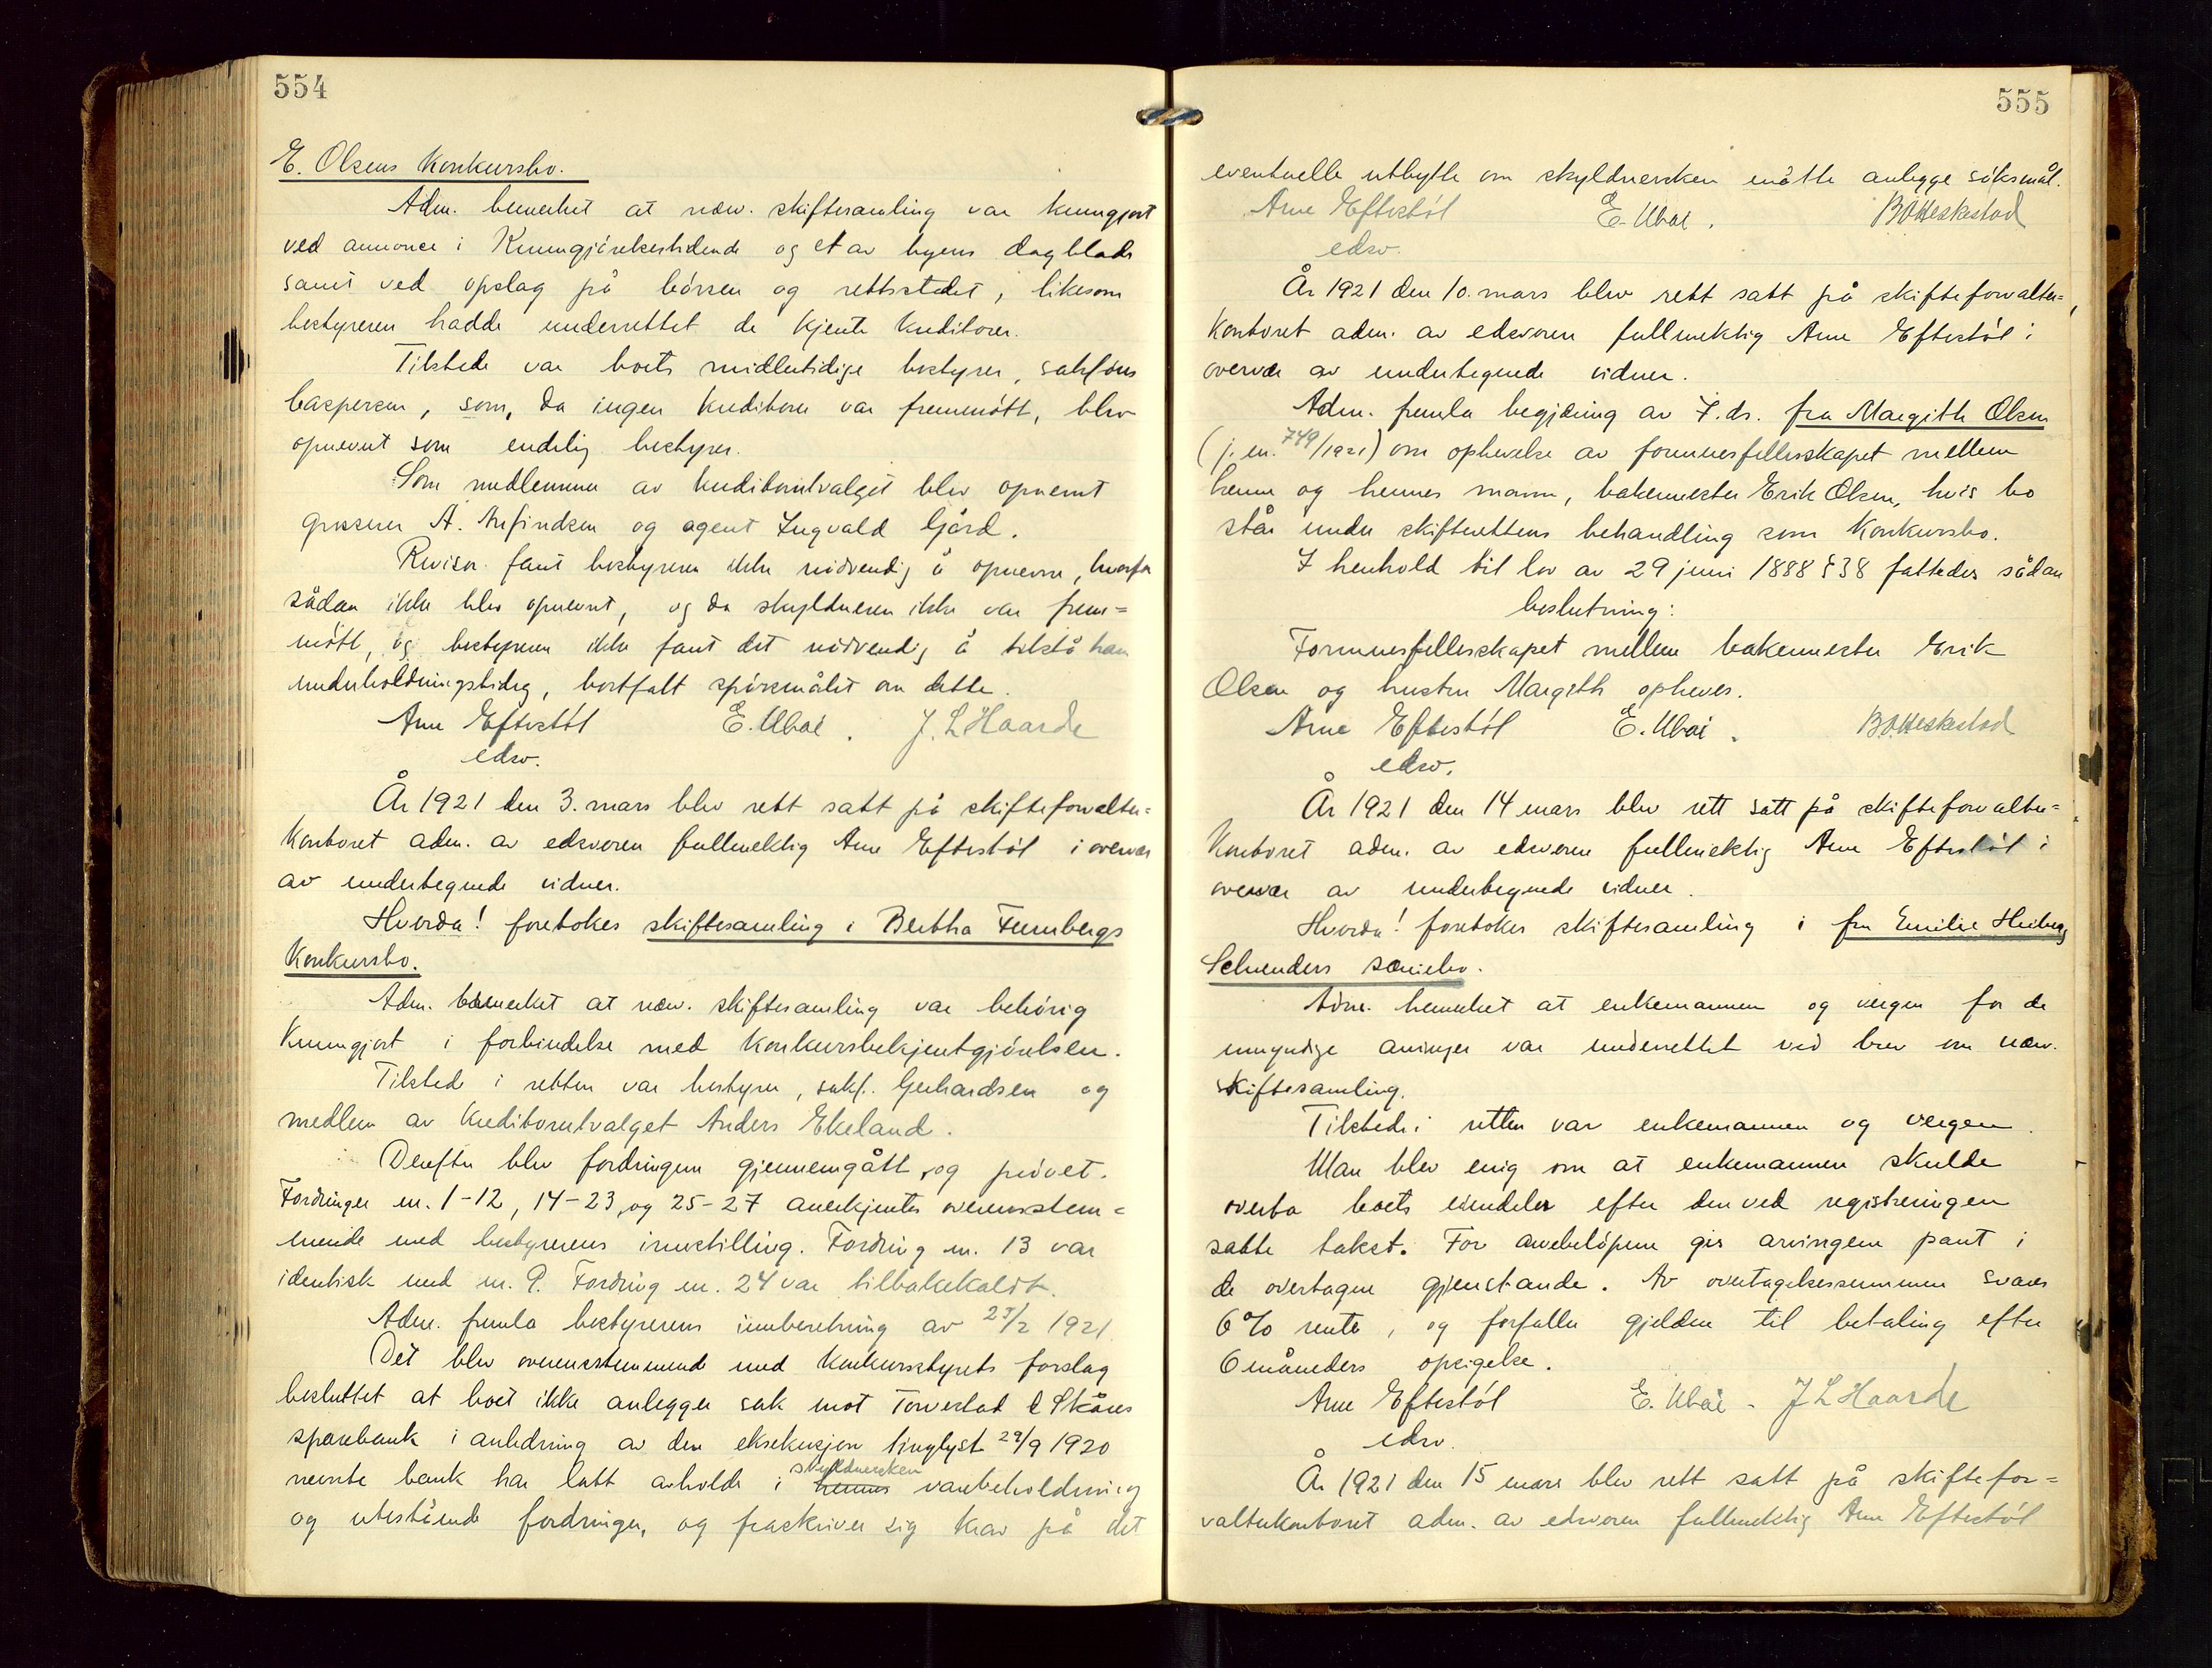 554
E. Olsens Konkursbo.
Adm. bemerket at nærv. skiftesamling var kunngjort
ved annonce i Kunngjörelsestidende og et av byens dagblade
samt ved opslag på börsen og rettsstedet, likesom
bestyreren hadde underrettet de kjente kreditorer.
Tilstede var boets midlertidige bestyrer, sakförer
Caspersen, som, da ingen kreditorer var fremmött, blev
opnevnt som endelig bestyrer.
Som medlemmer av kreditorutvalget blev opnevnt
grosserer A. Arfindsen og agent Ingvald Gjård.
Revisor fant bestyreren ikke nödvendig å opnevne, hvorfor
sådan ikke blev opnevnt, og da skyldneren ikke var frem=
mött, og bestyreren ikke fant det nödvendig å tilstå ham
underholdningsbidrag, bortfalt spörsmålet om dette.
Arne Eftestöl E. Ubøe. J. L Haarde
edsv.
År 1921 den 3. mars blev rett satt på skifteforvalter=
kontoret adm. av edsvoren fullmektig Arne Eftestöl i overvær
av undertegnede vidner.
Hvorda! foretokes skiftesamling i Bertha Furenbergs
Konkursbo.
Adm. bemerket at nærv. skiftesamling var behörig
kunngjort i forbindelse med konkursbekjentgjörelsen.
Tilstede i retten var bestyrer, sakf. Gerhardsen og
medlem av kreditorutvalget Anders Ekeland.
Derefter blev fordringene gjennemgått og prövet.
Fordringer nr. 1-12, 14-23, og 25-27 anerkjentes overensstem=
mende med bestyrerens innstilling. Fordring nr. 13 var
identisk med nr. 9. Fordring nr. 24 var tilbakekaldt.
Adm. fremla bestyrerens innberetning av 25/2 1921.
Det blev overensstemmende med konkursstyrets forslag
besluttet at boet ikke anlegger sak mot Torvestad & Skåres
sparebank i anledning av den eksekusjon tinglyst 29/9 1920
nevnte bank har latt avholde i hennes skyldnersken varebeholdning
og utestående fordringer, og fraskriver sig krav på det
555
eventuelle utbytte om skyldnersken måtte anlegge söksmål.
Arne Eftestöl E. Ubøe. B O Heskestad
edsv.
År 1921 den 10. mars blev rett satt på skifteforvalter=
kontoret adm. av edsvoren fullmektig Arne Eftestöl i
overvær av undertegnede vidner.
Adm. fremla begjæring av 7. ds. fra Margith Olsen
(j. nr. 749/1921) om ophevelse av formuesfellesskapet mellem
henne og hennes mann, bakermester Erik Olsen, hvis bo
står under skifterettens behandling som konkursbo.
I henhold til lov av 29 juni 1888 § 38 fattedes sådan
beslutning:
Formuesfellesskapet mellem bakermester Erik
Olsen og hustru Margith opheves.
Arne Eftestöl E. Ubøe. B.O. Heskestad
edsv.
År 1921 den 14 mars blev rett satt på skifteforvalter=
kontoret adm. av edsvoren fullmektig Arne Eftestöl i
overvær av undertegnede vidner.
Hvorda! foretokes skiftesamling i fru Emilie Heiberg
Schrøders særiebo.
Adm. bemerket at enkemannen og vergen for de
umyndige arvinger var underrettet ved brev om nærv.
skiftesamling.
Tilstede i retten var enkemannen og vergen.
Man blev enig om at enkemannen skulde
overta boets eiendeler efter den ved registreringen
satte takst. For arvebelöpene gis arvingene pant i
de overtagne gjenstande. Av overtagelsessummen svares
6% rente, og forfaller gjelden til betaling efter
6 måneders opsigelse.
Arne Eftestöl E. Ubøe. J L Haarde
edsv.
År 1921 den 15 mars blev rett satt på skiftefor=
valterkontoret adm. av edsvoren fullmektig Arne Eftestöl